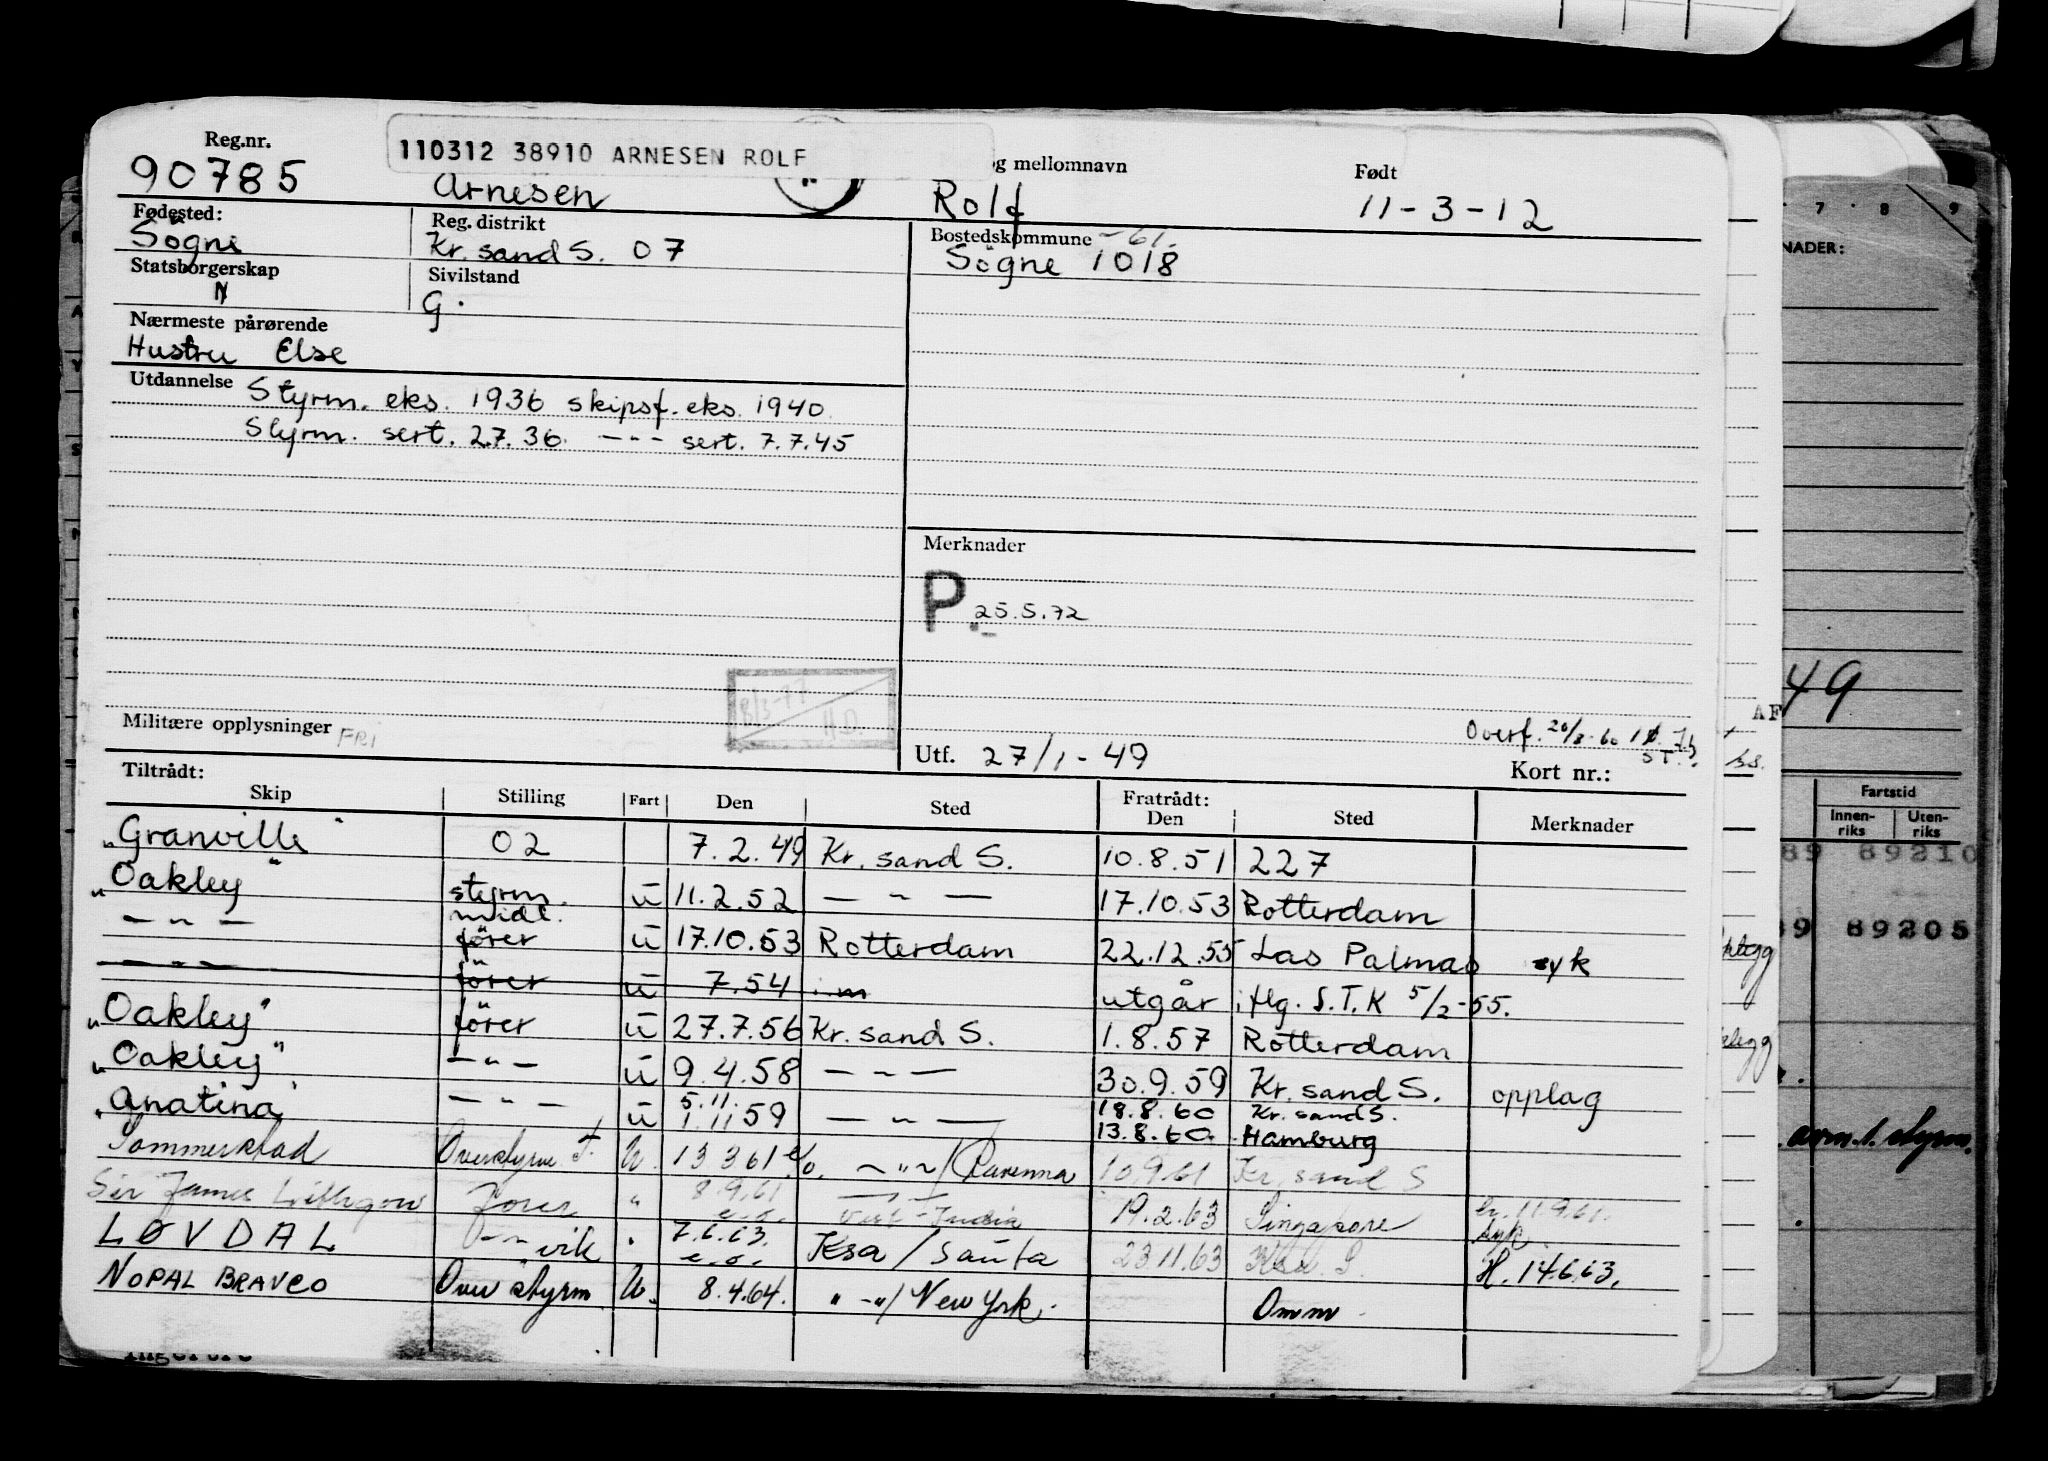 Reg.nr.
90785
110312 38910 ARNESEN ROLF
Arnesen
og mellomnavn
Rolf
Født
11-3-12
Fødested:
Søgne
Reg. distrikt
Kr. sand S. 07
Bostedskommune -61.
Søgne 1018
Statsborgerskap
N
Sivilstand
G.
Nærmeste pårørende
Hustru Else
Utdannelse Styrm. eks. 1936 skipsf. eks. 1940
Styrm. sert. 2.7.36. --- sert. 7.7.45
Merknader
P. 25.5.72
8/3-77
H.D.
Militære opplysninger FRI
Utf. 27/1-49
Overf.
Kort nr.:
Tiltrådt:
Skip Stilling Fart Den Sted Fratrådt: Den Sted Merknader
"Granville" 02 7.2.49 Kr. sand S. 10.8.51 227
"Oakley" styrm. ū 11.2.52 — " — 17.10.53 Rotterdam
— " — midl. fører ū 17.10.53 Rotterdam 22.12.55 Las Palmas syk
— " — fører ū 7.54 utgår iflg. S.T.K 5/2-55.
"Oakley" fører ū 27.7.56 Kr. sand S. 1.8.57 Rotterdam
"Oakley" — " — ū 9.4.58 — " — 30.9.59 Kr. sand S. opplag
"Anatina" — " — ū 5.11. 1.11 59 — " — 18.8.60 Kr. sand S.
13.8.60. Hamburg
Sommerstad Overstyrm U. 13 3 61 — " — / Ravenna 10.9.61 Kr. sand S
Sir James fører " 8.9.61 e.o. Vest-India 19.2.63 Singapore 11.9.61. syk.
LØVDAL — " — vik " 7.6.63. e.o. Ksa / Sauda 23.11.63 Ksa. S. H. 14.6.63.
NOPAL BRAVEO Overstyrm U. 8.4.64. " — " / New York. Omm.
7 8 9
NADER:
49
AF
Fartstid
Innen-
riks
Uten-
riks
89 89210
89205